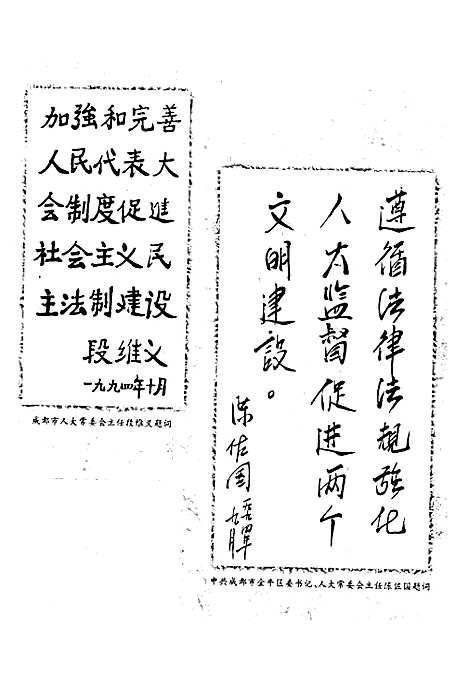 加強和完善
人民代表大
会制度促進
社会主义民
主法制建设
段维义
一九九四年十月
成都市人大常委会主任段维义题词
遵循法律法规强化
人大监督促进两个
文明建设。
陈佐国
一九九四年九月
中共成都市金牛区委书记、人大常委会主任陈佐国题词